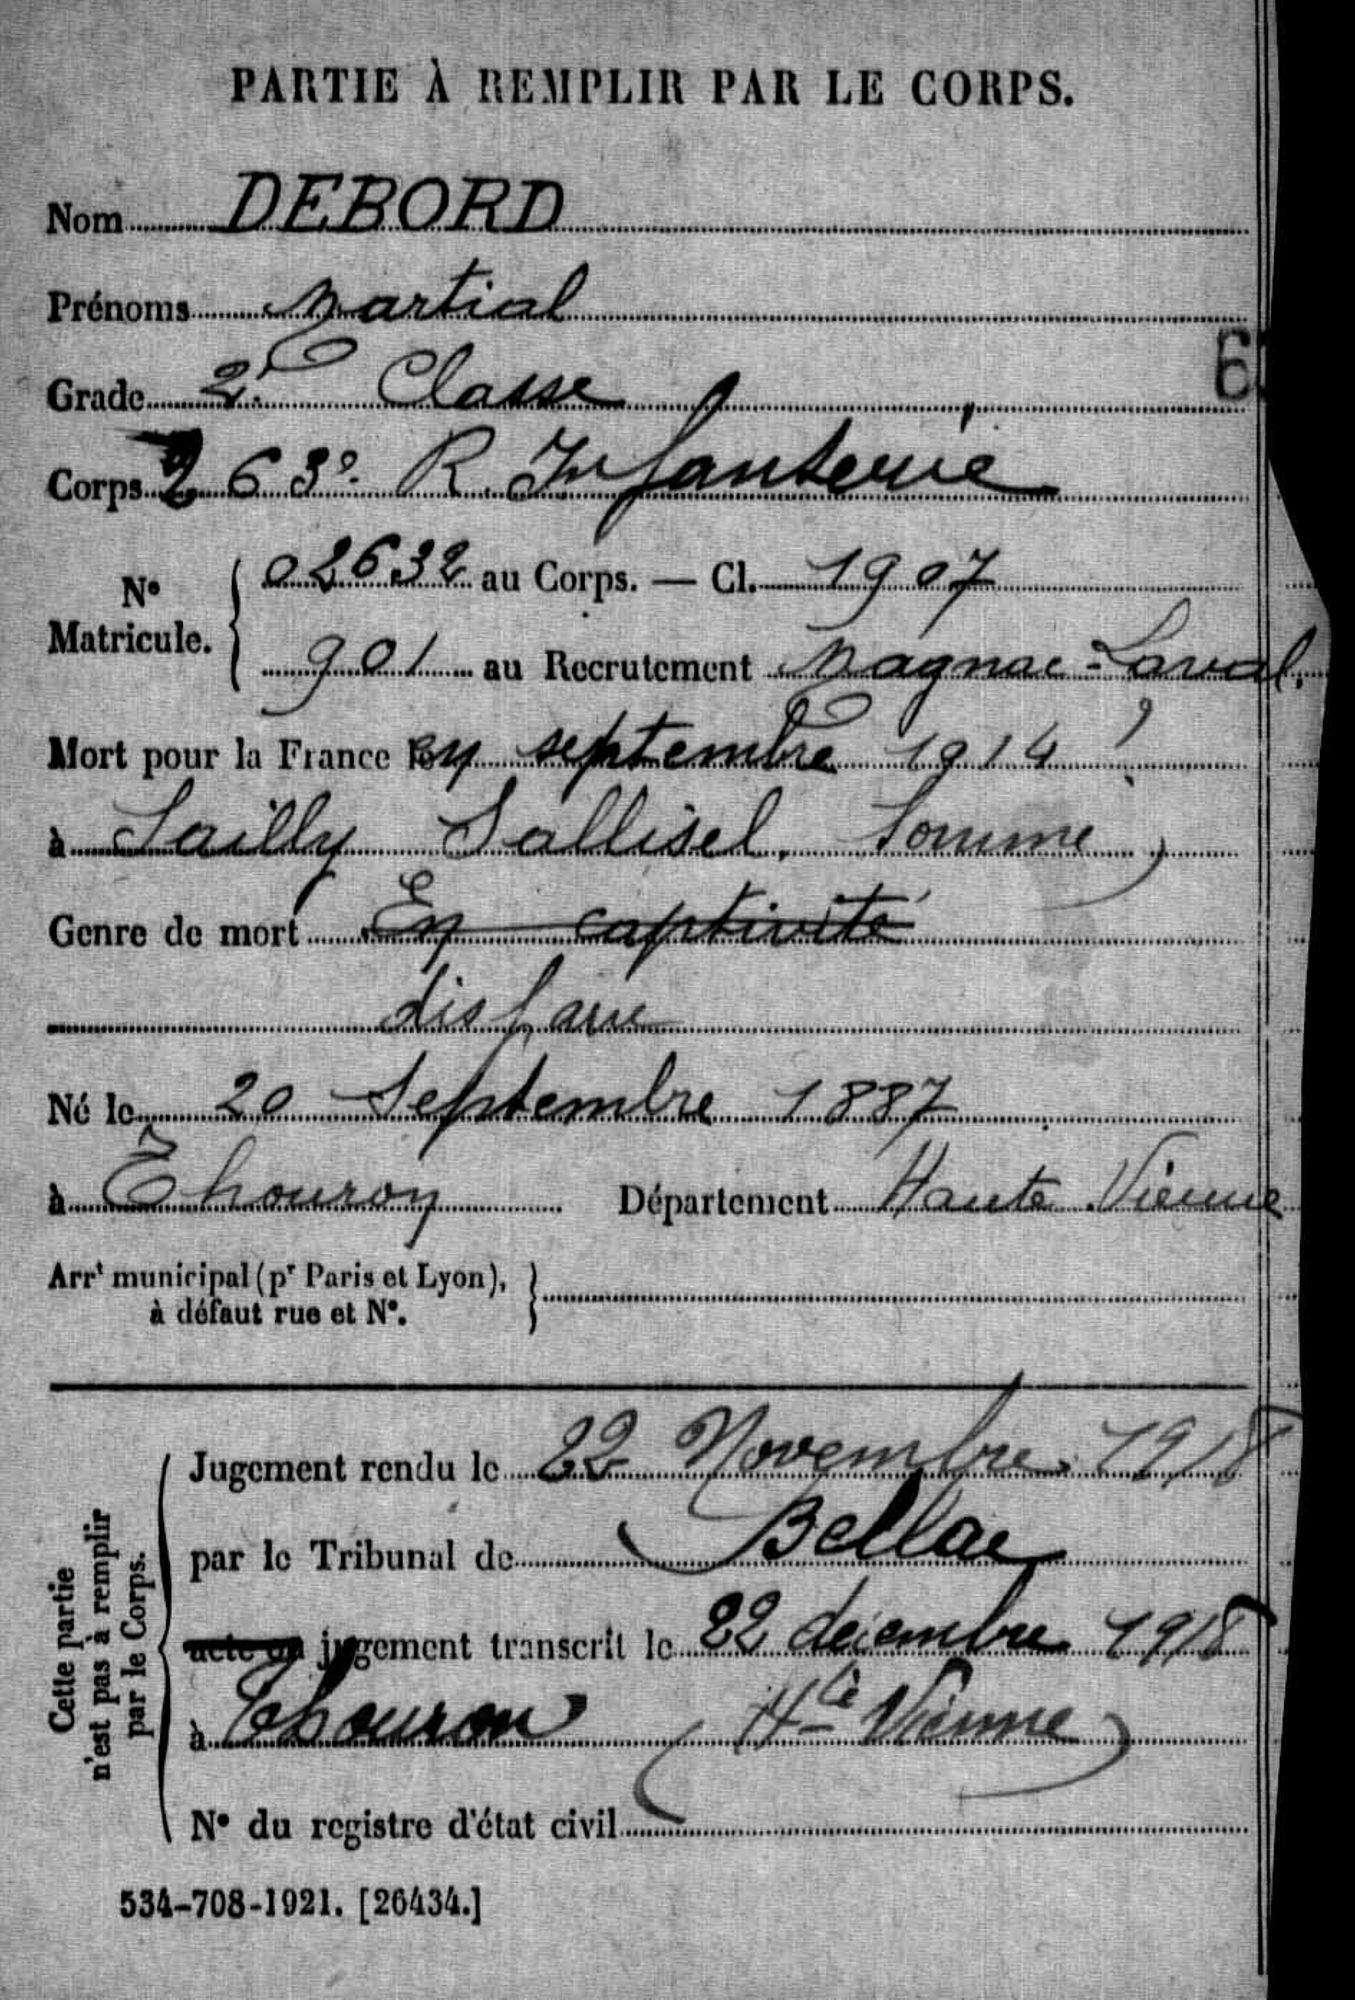 PARTIE À REMPLIR PAR LE CORPS.
Nom DEBORD
Prénoms Martial
Grade 2e Classe
6
Corps 263e R. Infanterie
02632 au Corps. — Cl. 1907
No
Matricule.
901 au Recrutement Magnac-Laval.
Mort pour la France en septembre 1914 ?
à Sailly Sallisel, Somme
Genre de mort En captivité
disparu
Né le 20 Septembre 1887
à Thouron Département Haute Vienne
Arrt municipal (pr Paris et Lyon),
à défaut rue et No.
Cette partie
n'est pas à remplir
par le Corps.
Jugement rendu le 22 Novembre 1918
par le Tribunal de Bellac
acte ou jugement transcrit le 22 décembre 1918
à Thouron (Hte Vienne)
No du registre d'état civil
534-708-1921. [26434.]